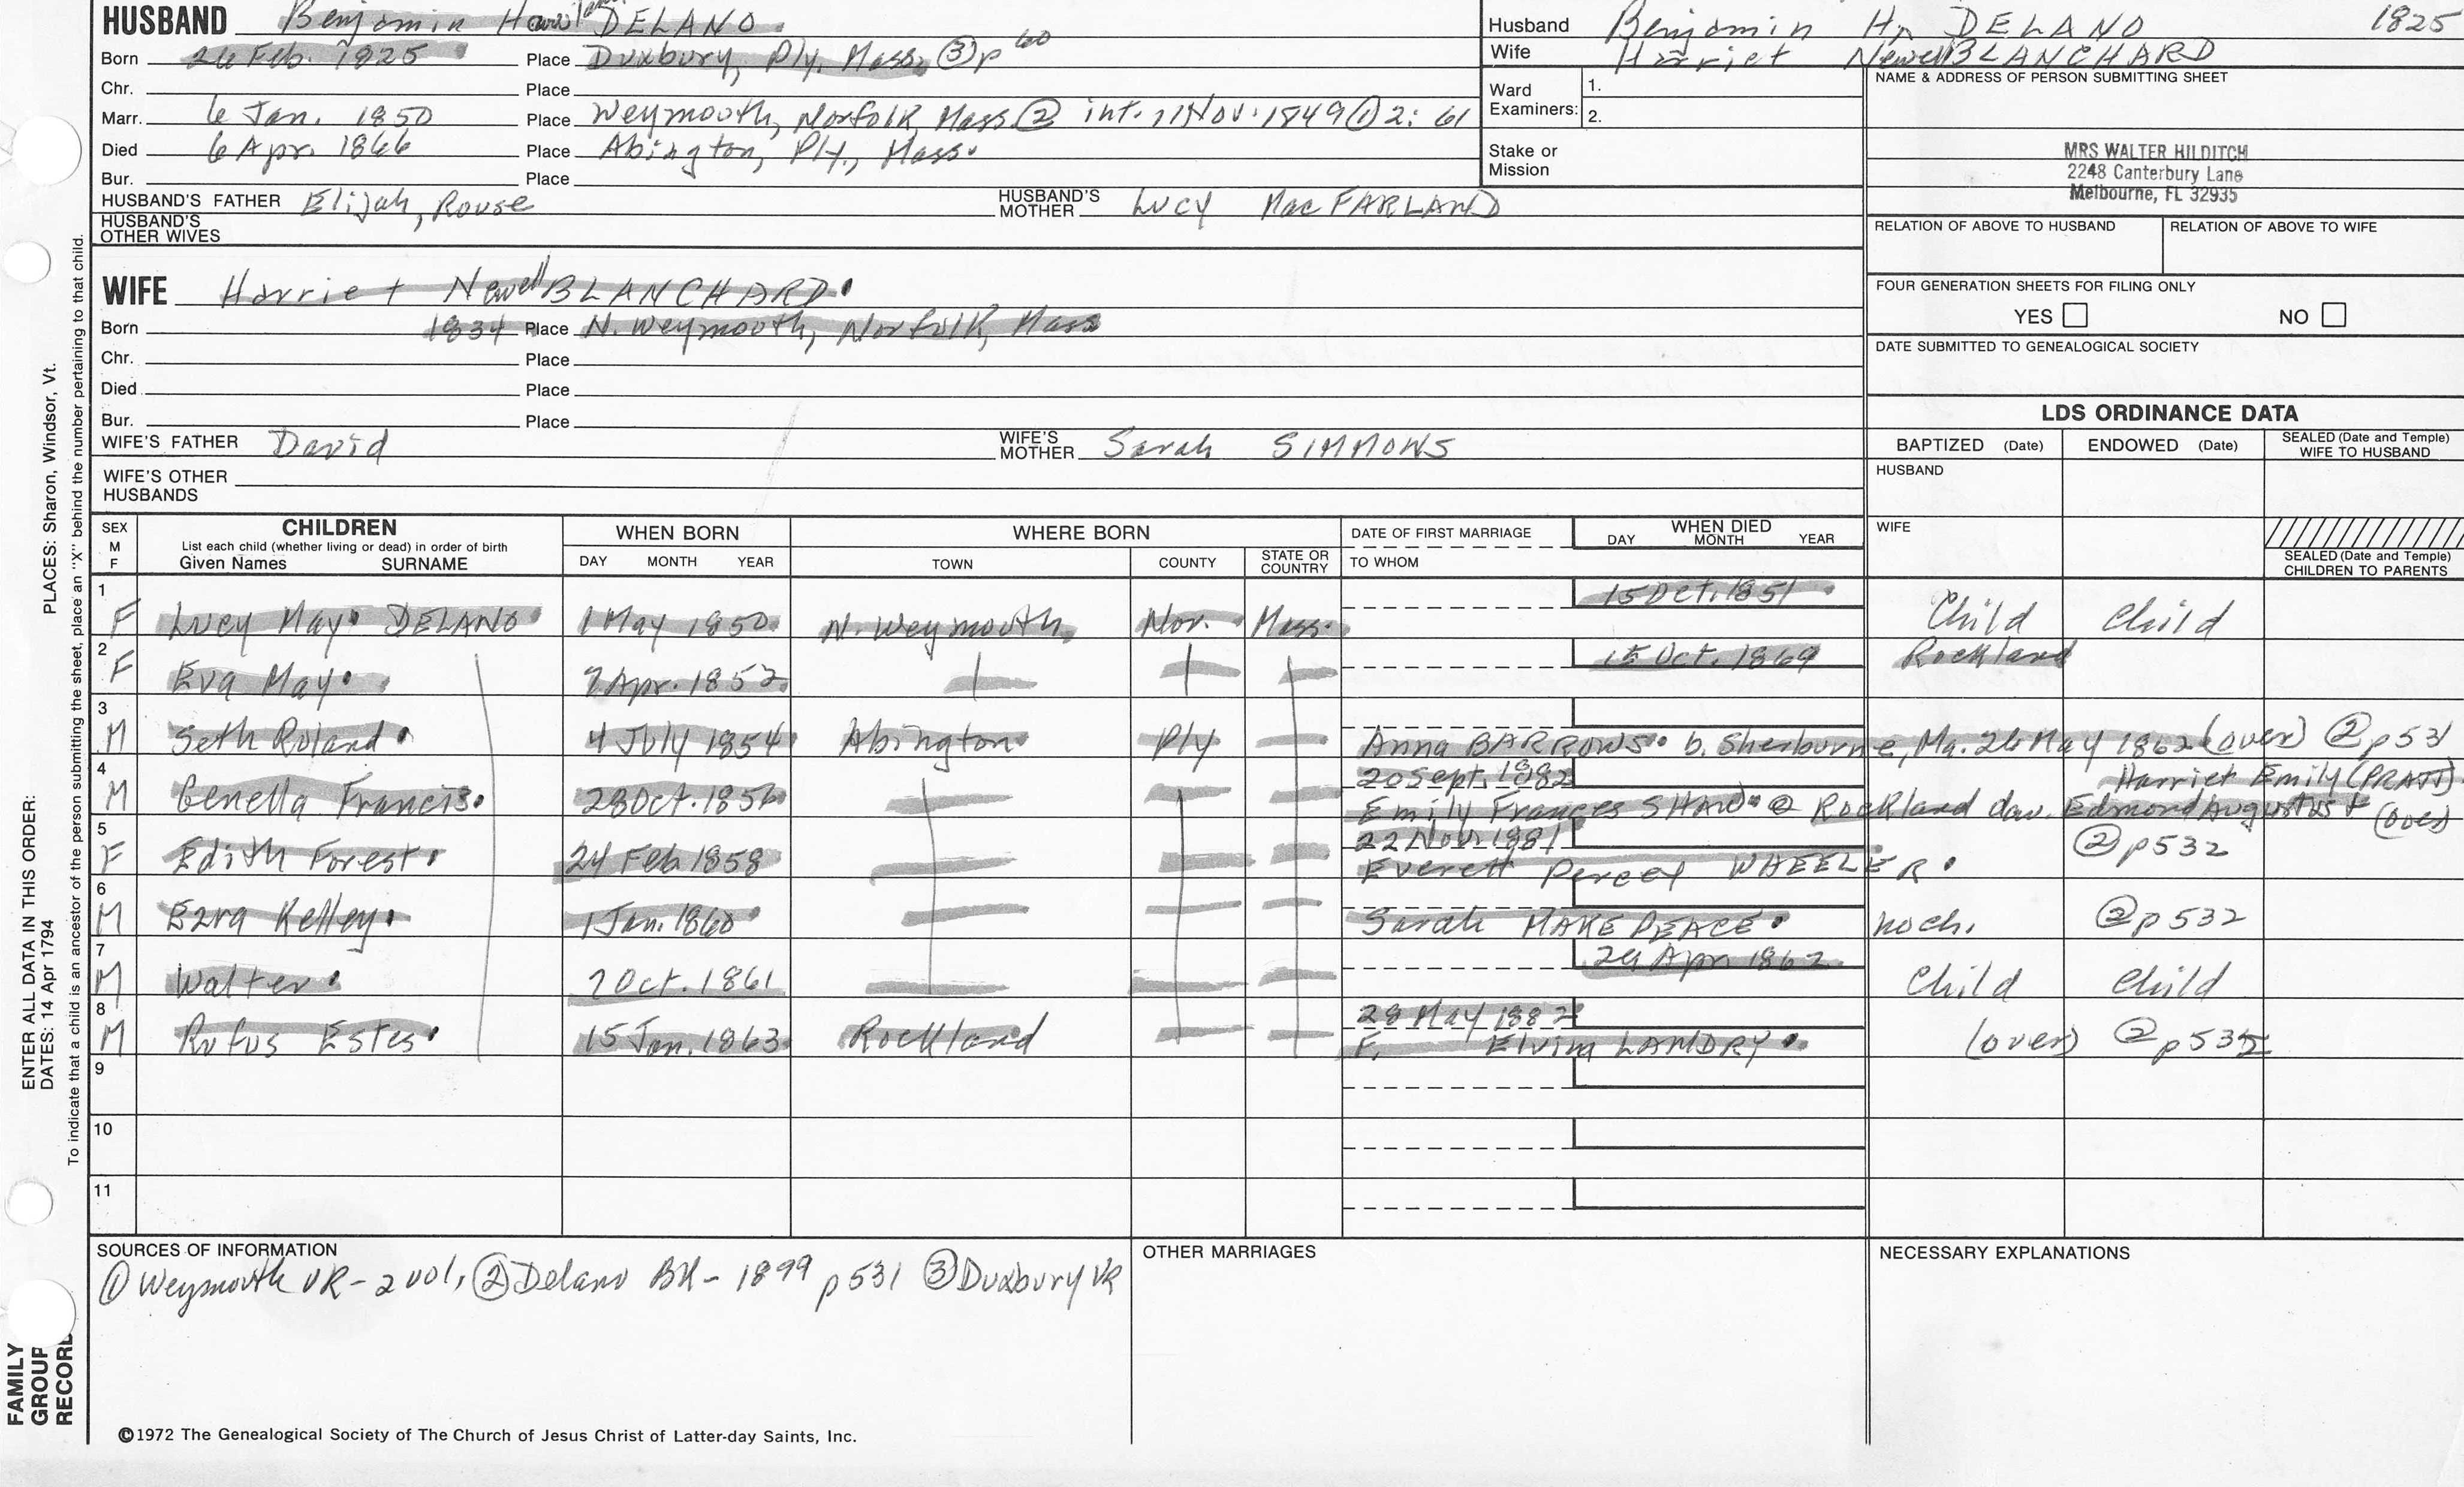 HUSBAND Benjamin DELANO.
Husband Benjamin H. DELANO 1825
Born 26 Feb. 1825 Place Duxbury, Ply. Mass. ③ p 60
Wife Harriet Newell BLANCHARD
Chr. Place
NAME & ADDRESS OF PERSON SUBMITTING SHEET
Ward Examiners: 1. 2.
Marr. 6 Jan. 1850 Place Weymouth, Norfolk, Mass ② int. Nov. 1849 ① 2: 61
Died 6 Apr. 1866 Place Abington, Ply., Mass.
Stake or Mission
MRS WALTER HILDITCH
2248 Canterbury Lane
Melbourne, FL 32935
Bur. Place
HUSBAND'S FATHER Elijah, Rouse HUSBAND'S MOTHER Lucy Mac FARLAND
HUSBAND'S OTHER WIVES
RELATION OF ABOVE TO HUSBAND RELATION OF ABOVE TO WIFE
WIFE Harriet Newell BLANCHARD.
FOUR GENERATION SHEETS FOR FILING ONLY
YES NO
Born 1834 Place N. Weymouth, Norfolk, Mass
Chr. Place
DATE SUBMITTED TO GENEALOGICAL SOCIETY
Died Place
Bur. Place
LDS ORDINANCE DATA
WIFE'S FATHER David WIFE'S MOTHER Sarah SIMMONS
BAPTIZED (Date) ENDOWED (Date) SEALED (Date and Temple) WIFE TO HUSBAND
WIFE'S OTHER HUSBANDS
HUSBAND
SEX M F
CHILDREN
List each child (whether living or dead) in order of birth
Given Names SURNAME
WHEN BORN
DAY MONTH YEAR
WHERE BORN
TOWN COUNTY STATE OR COUNTRY
DATE OF FIRST MARRIAGE
TO WHOM
WHEN DIED
DAY MONTH YEAR
WIFE
SEALED (Date and Temple) CHILDREN TO PARENTS
1 15 Oct. 1851
F Lucy May. DELANO. 1 May 1850 N. Weymouth, Nor. Mass. Child Child
2 15 Oct. 1869 Rockland
F Eva May. 7 Apr. 1852
3
M Seth Roland. 4 July 1854 Abington Ply Anna BARROWS. b. Sherburne, Ma. 26 May 1862 (over) ② p 531
4 20 Sept. 1882 Harriet Emily (PRATT)
M Genella Francis. 28 Oct. 1856 Emily Frances SHAW. @ Rockland dau. Edmond Augustus & (over)
5 22 Nov. 1881
F Edith Forest. 24 Feb 1858 Everett WHEELER. ② p 532
6
M Ezra Kelley. 1 Jan. 1860 Sarah MAKEPEACE. noch. ② p 532
7 29 Apr 1862
M Walter. 7 Oct. 1861 Child Child
8 28 May 1882
M Rufus Estes. 15 Jan. 1863 Rockland F. Elvira LANDRY. (over) ② p 532
9
10
11
SOURCES OF INFORMATION
① Weymouth VR - 2 vol, ② Delano BK - 1899 p 531 ③ Duxbury VR
OTHER MARRIAGES
NECESSARY EXPLANATIONS
©1972 The Genealogical Society of The Church of Jesus Christ of Latter-day Saints, Inc.
FAMILY GROUP RECORD
ENTER ALL DATA IN THIS ORDER:
DATES: 14 Apr 1794 PLACES: Sharon, Windsor, Vt.
To indicate that a child is an ancestor of the person submitting the sheet, place an "X" behind the number pertaining to that child.